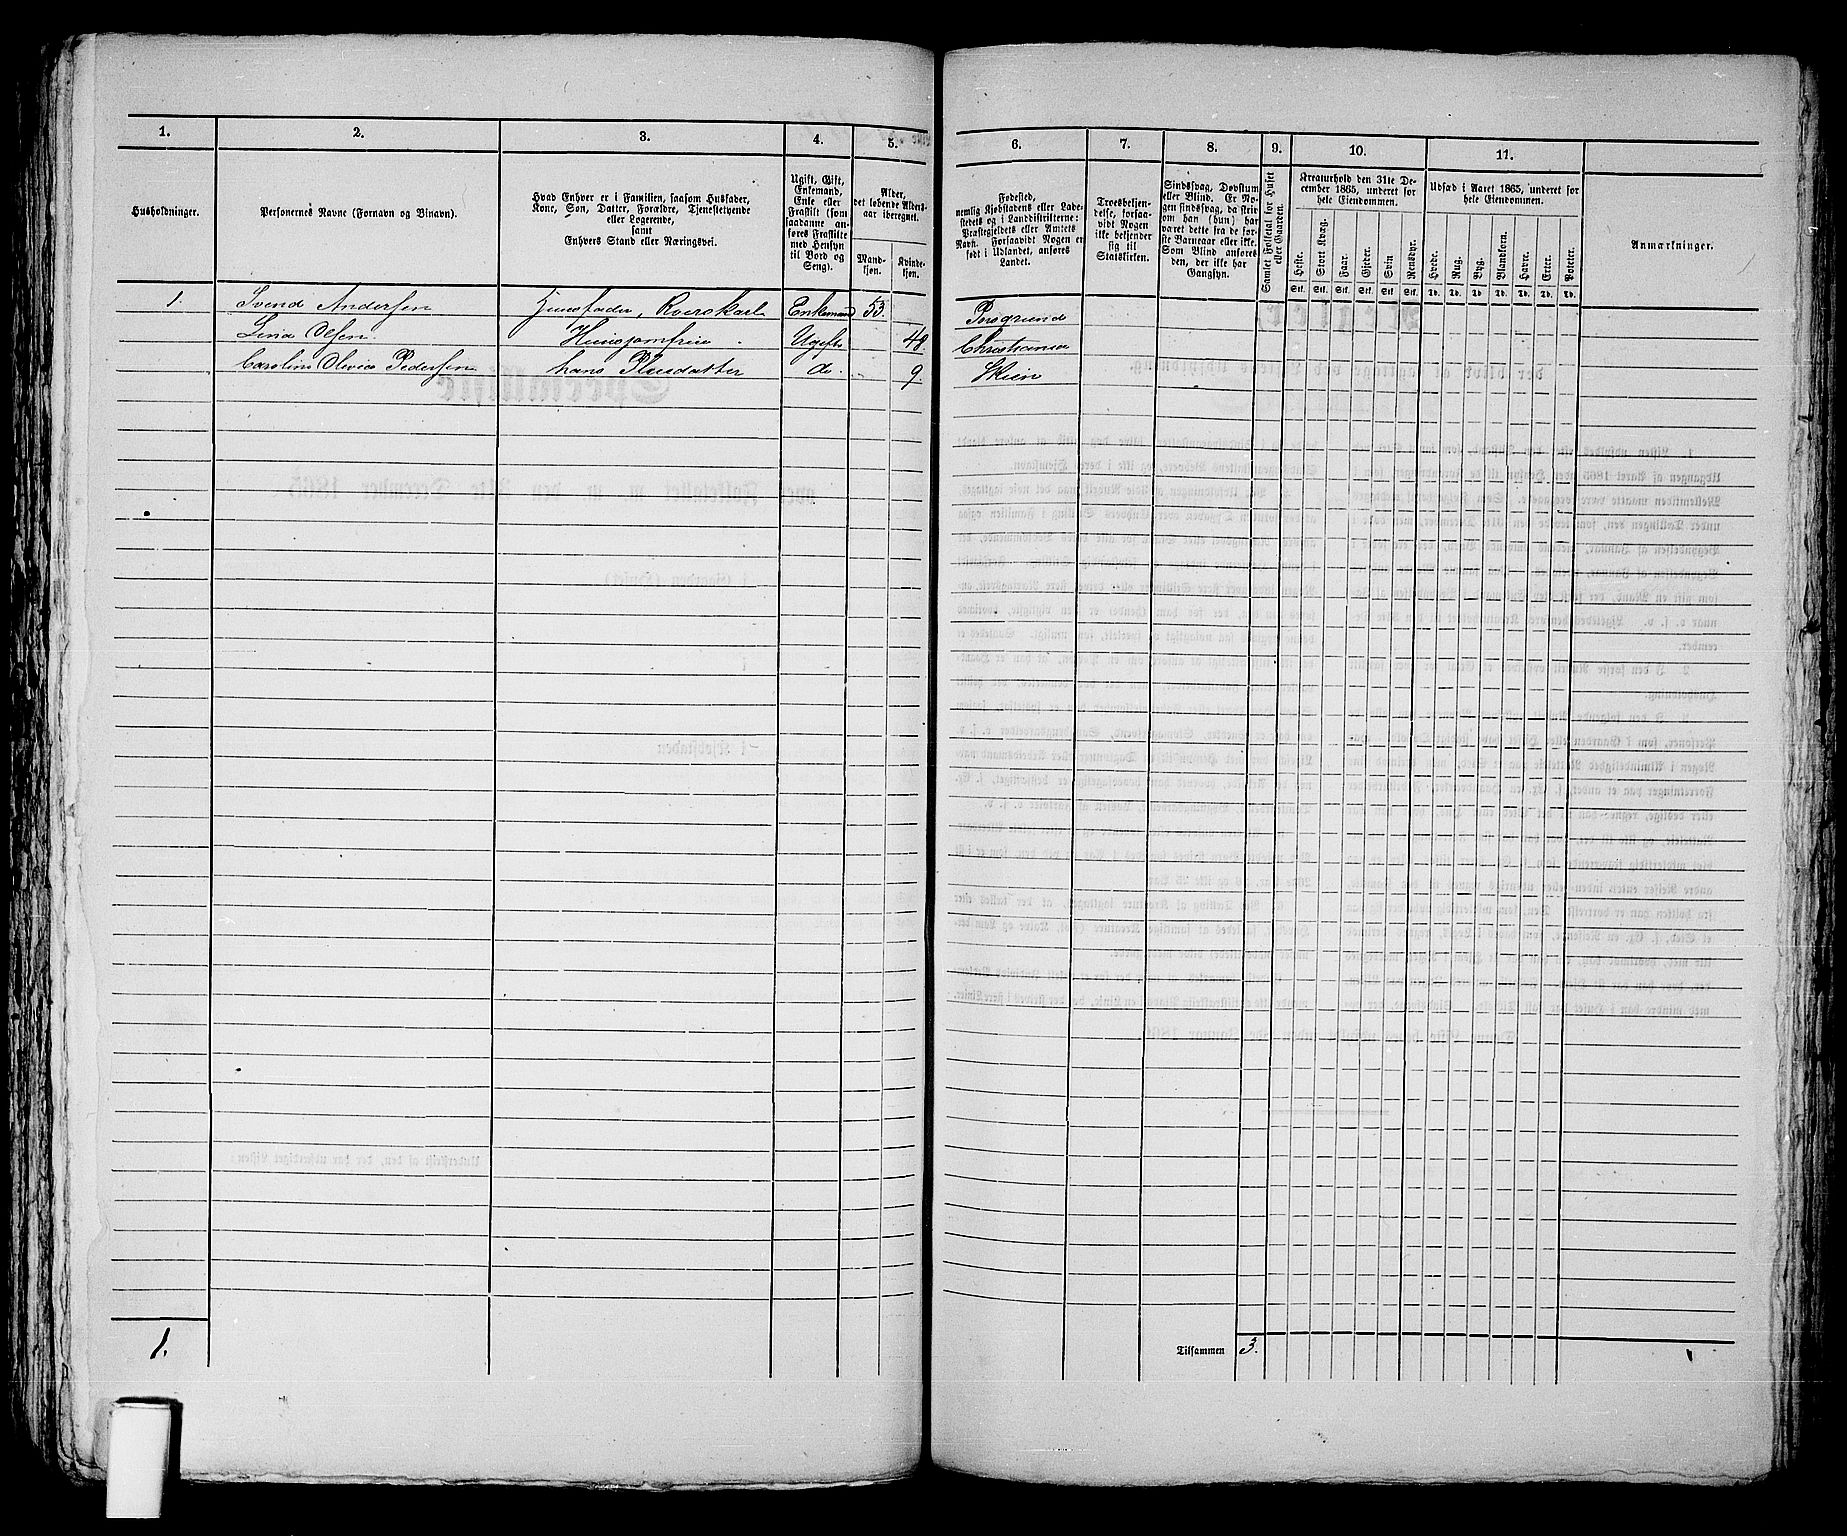 1. 2. 3. 4. 5. 6. 7. 8. 9. 10. 11.
Husholdninger.
Personernes Navne (Fornavn og Binavn).
Hvad Enhver er i Familien, saasom Husfader,
Kone, Søn, Datter, Forældre, Tjenestetyende
eller Logerende,
samt
Enhvers Stand eller Næringsvei.
Ugift, Gift,
Enkemand,
Enke eller
Fraskilt (som
saadanne an-
føres Fraskilte
med Hensyn
til Bord og
Seng).
Alder,
det løbende Alders-
aar iberegnet.
Mand-
kjøn.
Kvinde-
kjøn.
Fødested,
nemlig Kjøbstadens eller Lade-
stedets og i Landdistrikterne:
Præstegjeldets eller Amtets
Navn. Forsaavidt Nogen er
født i Udlandet, anføres
Landet.
Troesbekjen-
delse, forsaa-
vidt Nogen
ikke bekjender
sig til
Statskirken.
Sindssvag, Døvstum
eller Blind. Er No-
gen sindssvag, da skriv
om han (hun) har
været dette fra de før-
ste Barneaar eller ikke.
Som Blind anføres
den, der ikke har
Gangsyn.
Samlet Folketal for Huset
eller Gaarden.
Kreaturhold den 31te De-
cember 1865, underet for
hele Eiendommen.
Heste. Stort Kvæg. Faar. Gjeder. Svin Rensdyr.
Stk. Stk. Stk. Stk. Stk. Stk.
Udsæd i Aaret 1865, underet for
hele Eiendommen.
Hvede. Rug. Byg. Blandkorn. Havre. Erter. Poteter.
Td. Td. Td. Td. Td. Td. Td.
Anmærkninger.
1. Svend Andersen Huusfader, Enkemand 53. Porsgrund
Lina Olsen. Huusjomfrue Ugift 48. Christiania
Caroline Olivia Pedersen hans Pleiedatter do. 9. Skien
1.
Tilsammen 3.